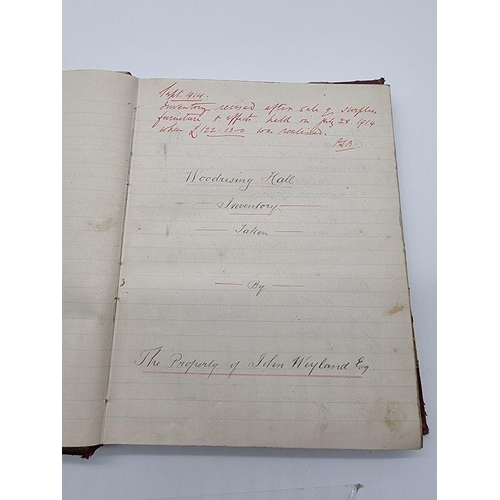 Sept. 1914.
Inventory revised after sale of surplus
furniture & effects held on July 28. 1914
when £122-13-0 was realised.
Woodrising Hall
Inventory
Taken
By
The Property of John Weyland Esq